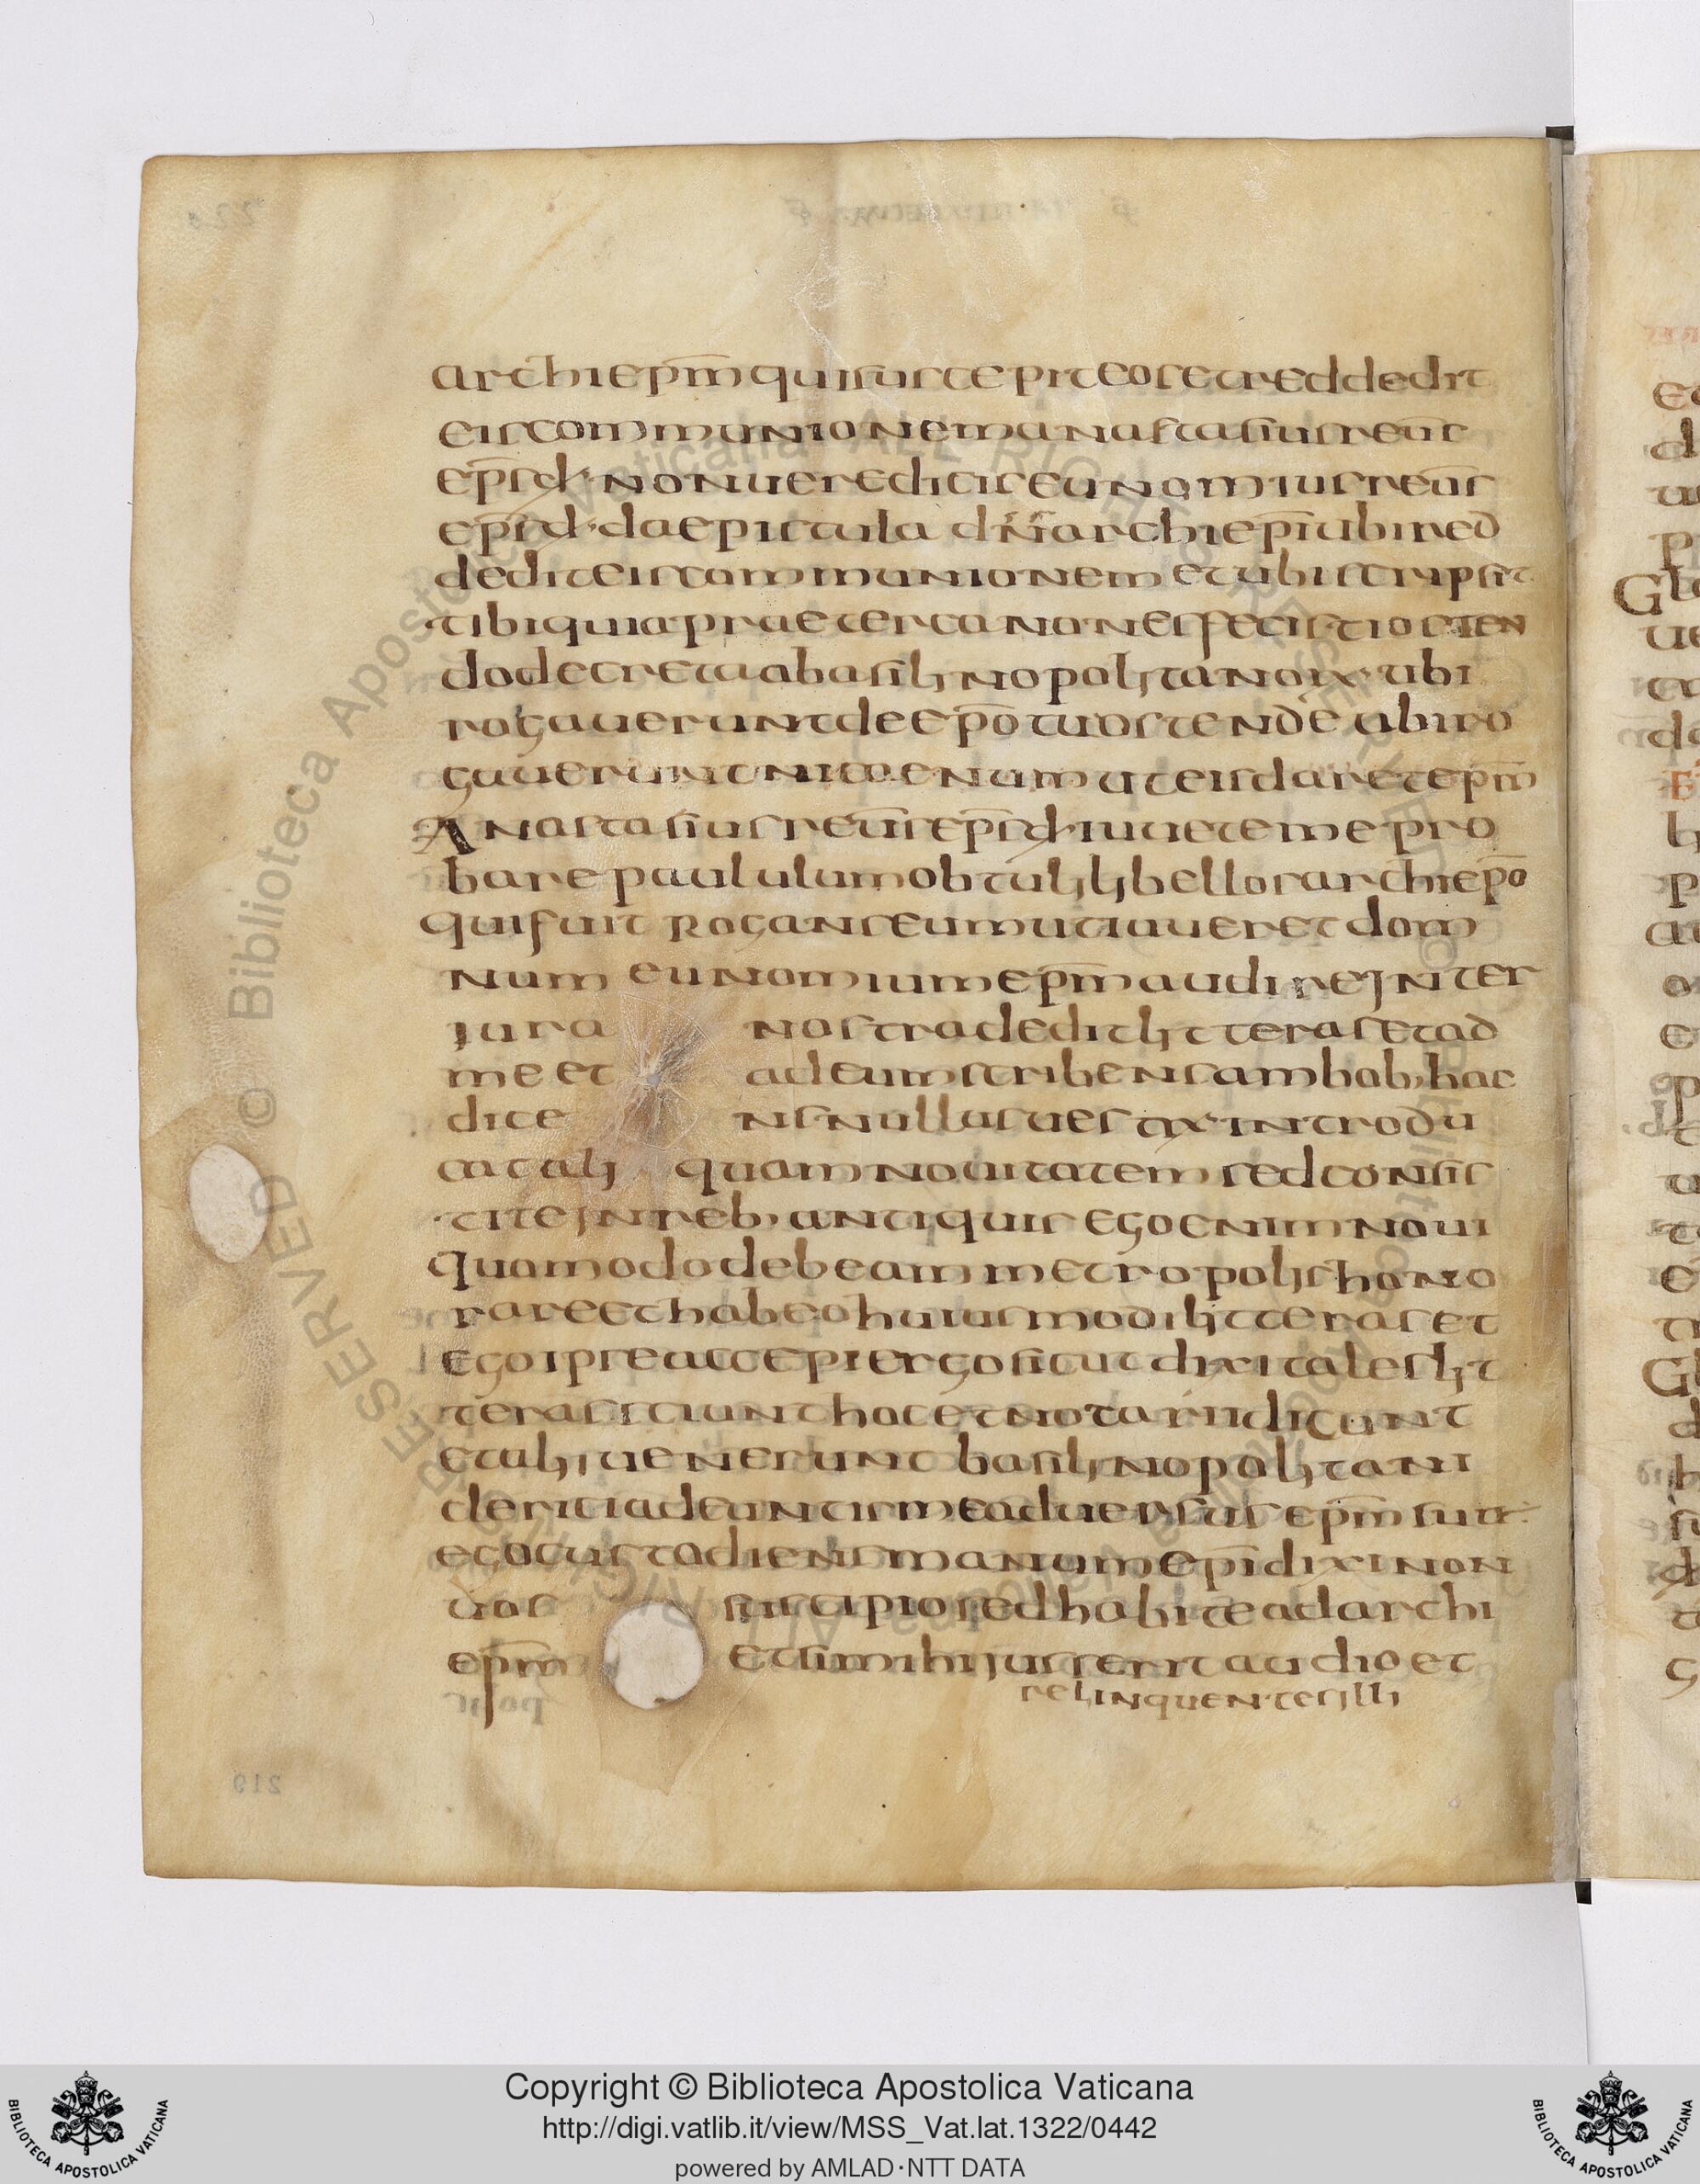 archiepm̅ qui suscepit eos et reddedit
eis communionem anastasius reūs
ep̅s d· non uere dicit eunomius reūs
ep̅s d· da epistula dn̄i archiep̅i ubi red
dedit eis communionem et ubi scripsit
tibi quia praeter canones fecisti osten
do decreta a basilinopolitanoix· ubi
rogauerunt de ep̅o tuo ostende ubi ro
gauerunt nicaenum ut eis daret ep̅m
Anastasius reūs ep̅s d· iuuete me pro
bare paululum obtuli libellos archiep̅o
qui fuit rogans eum uti iuueret dom
num eunomium ep̅m audire jnter
jura nostra dedit litteras et ad
me et ad eum scribens ambob· hac
dicens nullus uestrx· introdu
cat aliquam nouitatem sed consis
tite jn reb· antiquis ego enim noui
quomodo debeam metropolis hono
rare et habeo huiusmodi litteras et
ego ipse accepi ergo sicut dixi tales lit
teras sciunt hoc et notarii dicunt
et alii uenerunt basilinopolitani
clerici adeuntis me aduersus ep̅m suu·
ego custodiens manum ep̅i dixi non
uos suscipio sed habite ad archi
ep̅m et si mihi jusserit audio et
relinquentes illi
219
Copyright © Biblioteca Apostolica Vaticana
http://digi.vatlib.it/view/MSS_Vat.lat.1322/0442
powered by AMLAD·NTT DATA
BIBLIOTECA APOSTOLICA VATICANA
BIBLIOTECA APOSTOLICA VATICANA